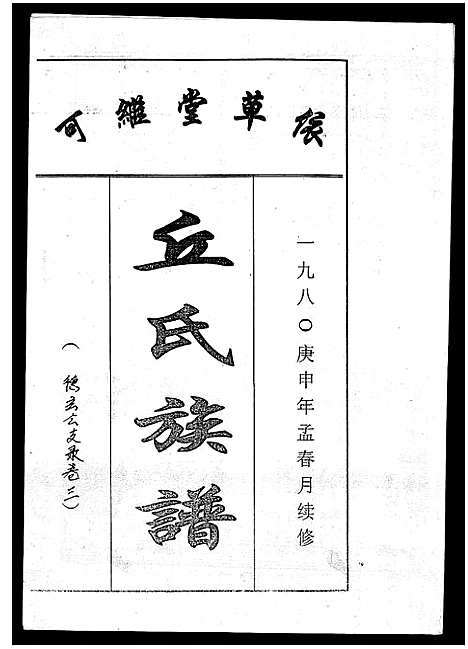 草堂繼可
一九八〇庚申年孟春月续修
丘氏族譜
(德玄公支录卷三)